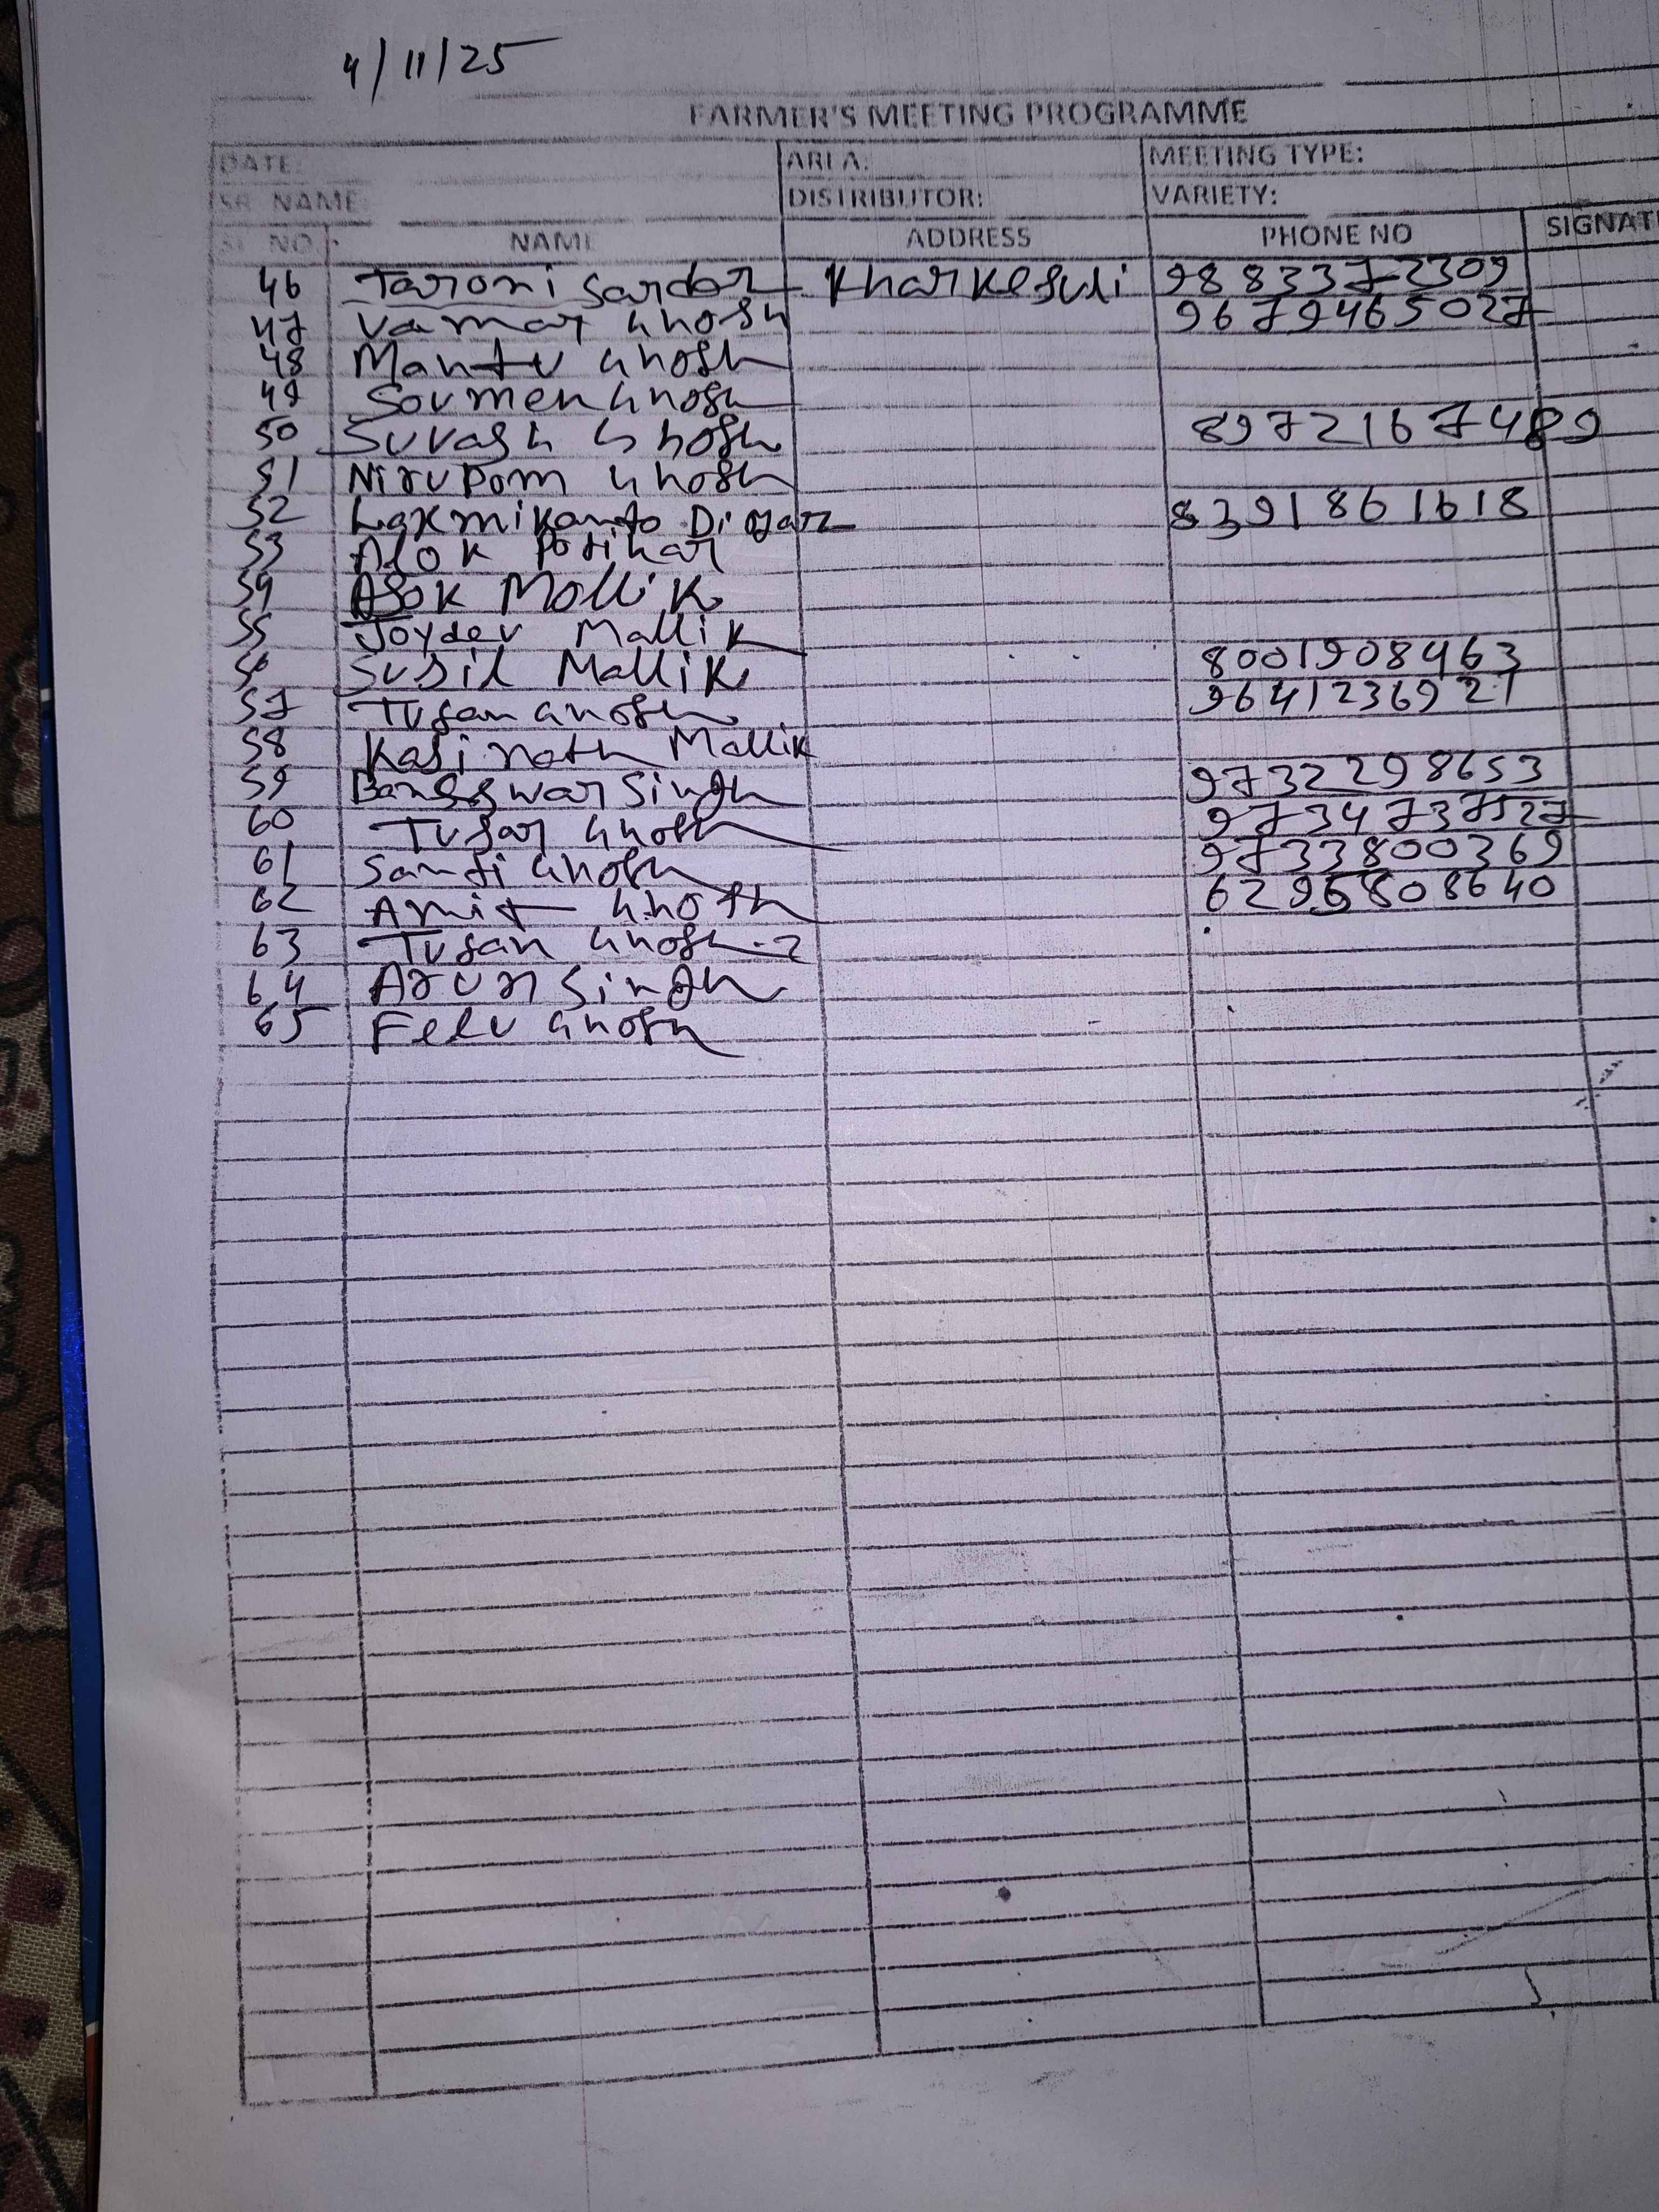 4/11/25
FARMER'S MEETING PROGRAMME
DATE: AREA: MEETING TYPE:
SR NAME: DISTRIBUTOR: VARIETY:
SL NO. NAME ADDRESS PHONE NO SIGNAT
46 Taroni Sardar Kharkesuli 9883372309
47 Ghosh 9679465027
48 Mantu Ghosh
49 Soumen Ghosh
50 Suvash Ghosh 8972167489
51 Nirupom Ghosh
52 Laxmikanto Digar 8391861618
53 Alok
54 Asok Mollik
55 Joydev Mallik
56 Susil Mallik 8001908463
57 Tusan Ghosh 9641236921
58 Kasinath Mallik
59 Baneswar Singh 9732298653
60 Tusar Ghosh
61 Santi Ghosh 9733800369
62 Amit Ghosh 6295808640
63 Tusan Ghosh-2
64 Arun Singh
65 Felu Ghosh